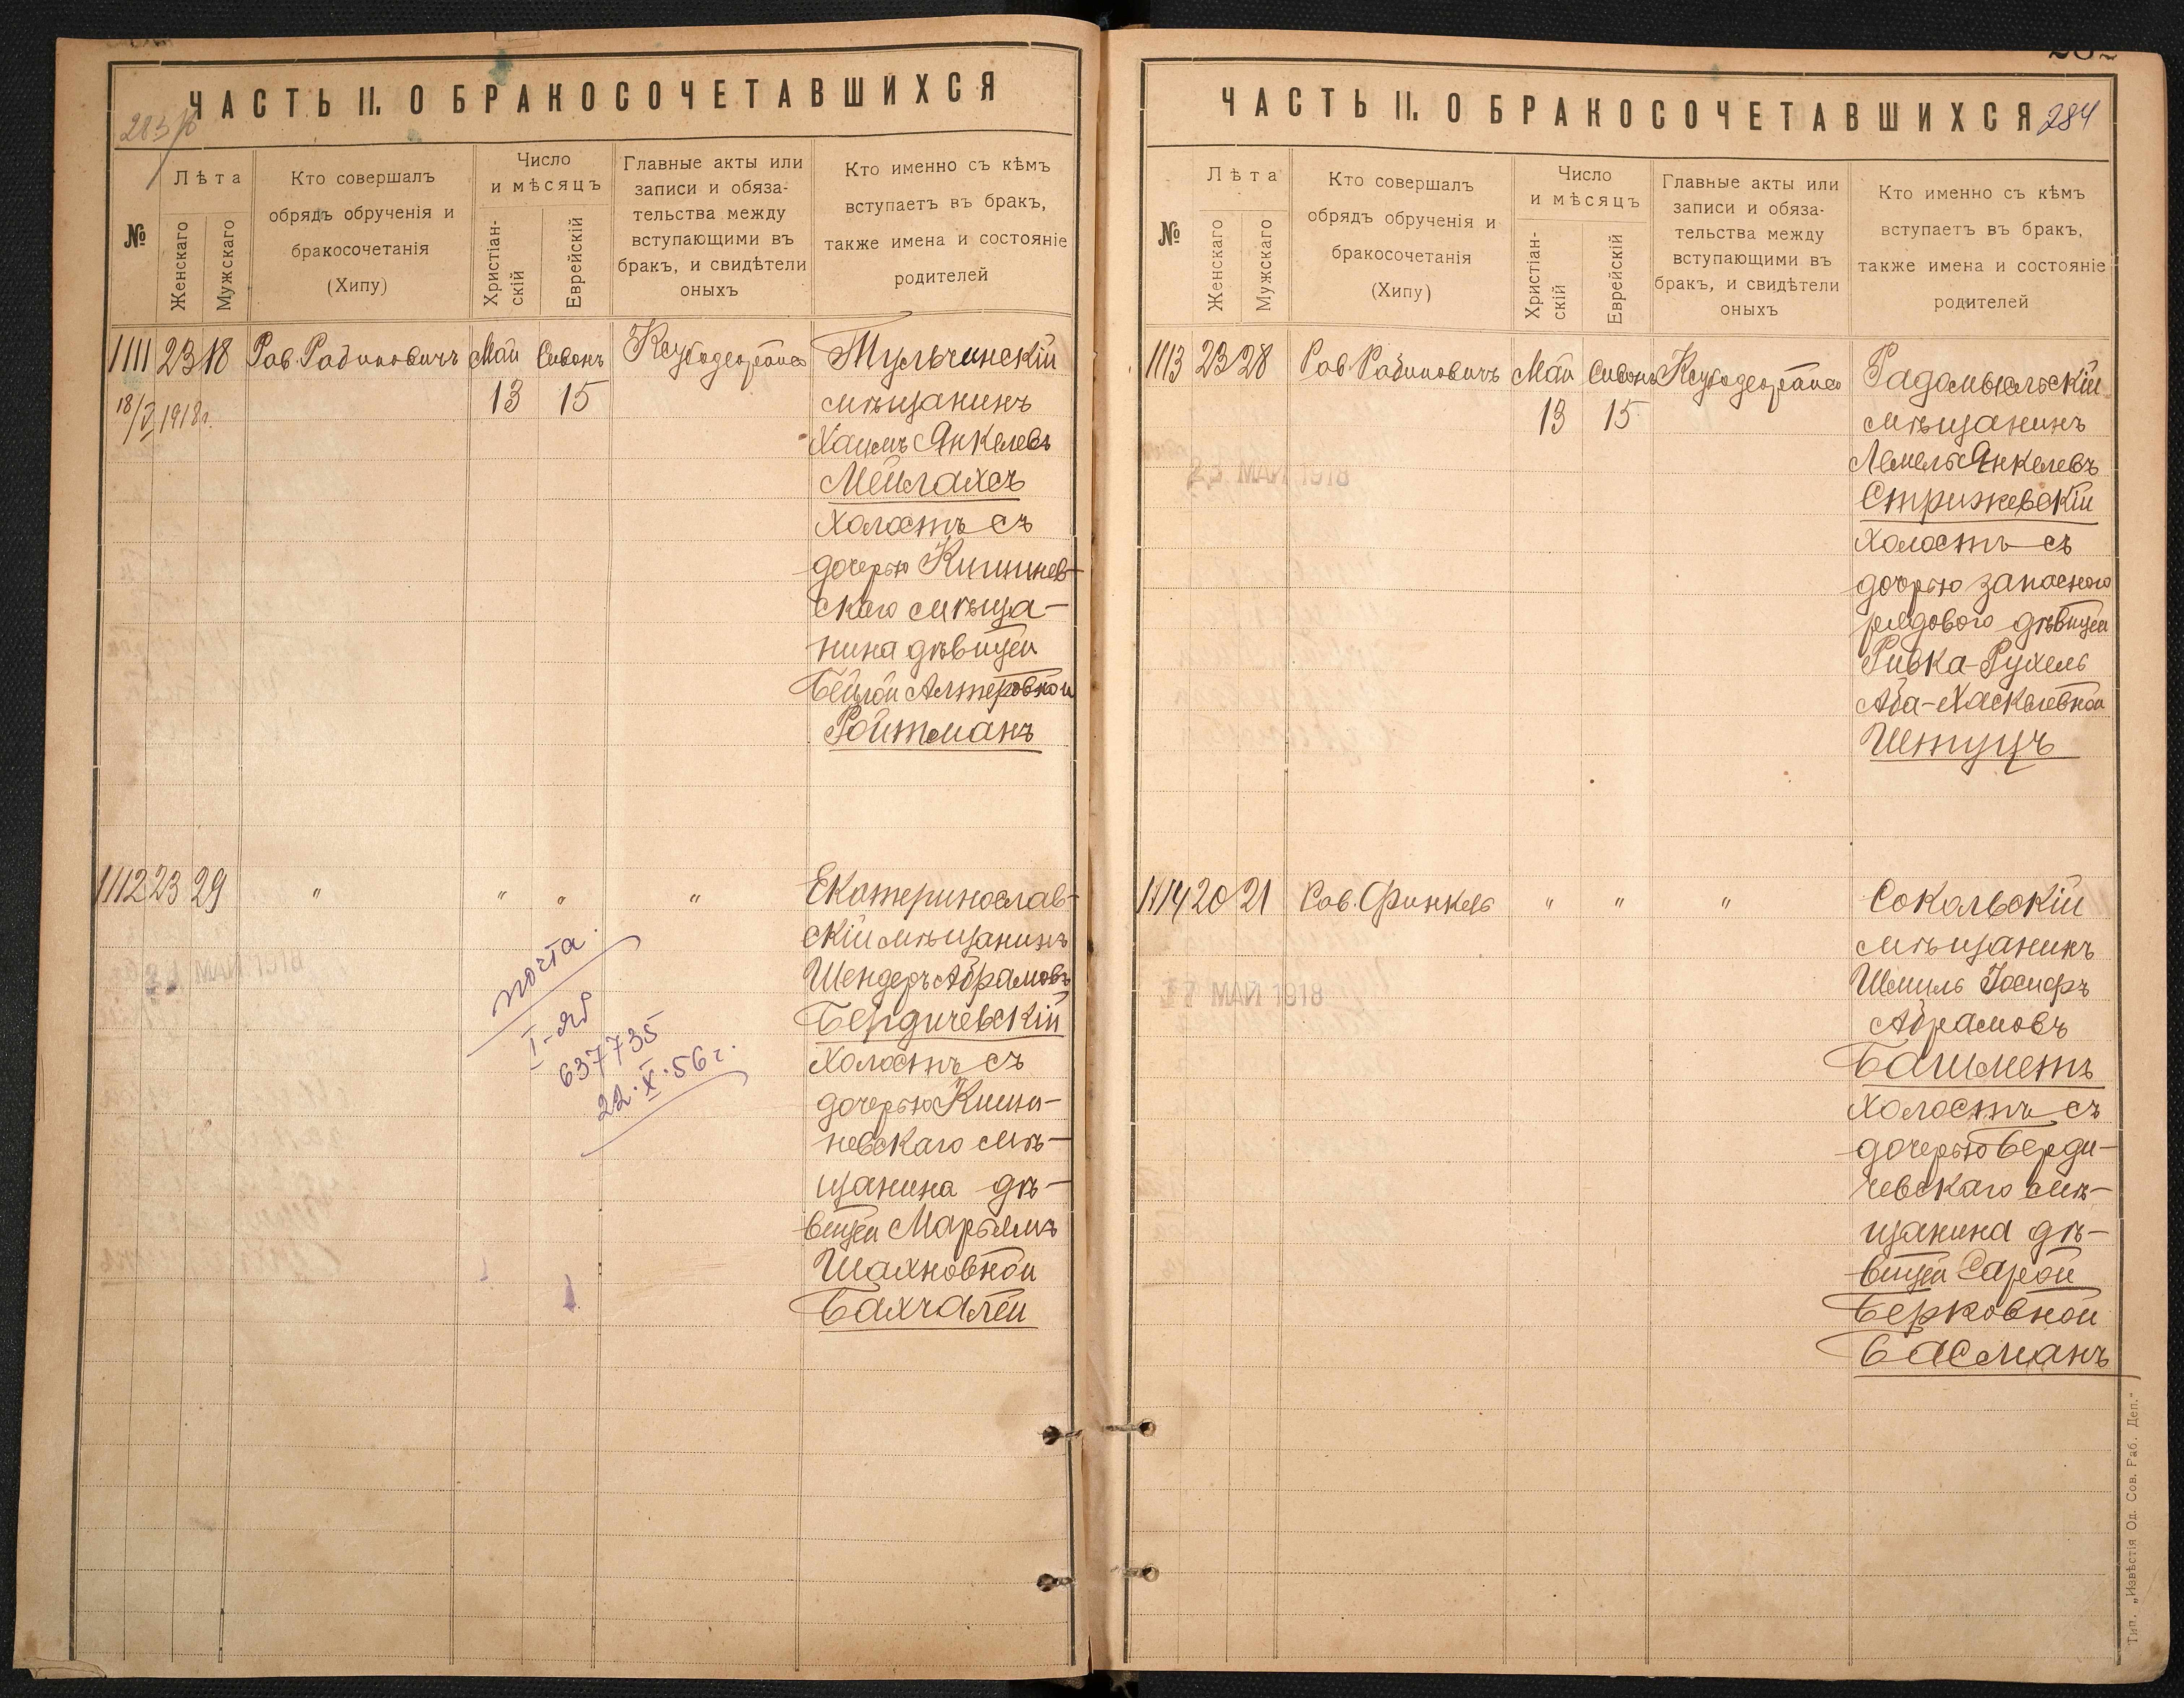 ЧАСТЬ II. О БРАКОСОЧЕТАВШИХСЯ
№
Лѣта
Женскаго
Мужскаго
Кто совершалъ
обрядъ обрученія и
бракосочетанія
(Хипу)
Число
и мѣсяцъ
Христіан-
скій
Еврейскій
Главные акты или
записи и обяза-
тельства между
вступающими въ
бракъ, и свидѣтели
оныхъ
Кто именно съ кѣмъ
вступаетъ въ бракъ,
также имена и состояніе
родителей
1111 23 18 Рав. Рабиновичъ Май Сивонъ Тульчинскій
13 15 мѣщанинъ
18/V 1918г.
Хаимъ Янкелевъ
Мейлахсъ
Холостъ съ
дочерью Кишинев-
скаго мѣща-
нина дѣвицей
Бейлой Алтеровной
Ройтманъ
1112 23 29 " " " " Екатеринослав-
скій мѣщанинъ
Шендеръ Абрамовъ
Бердичевскій
Холостъ съ
дочерью Киши-
невскаго мѣ-
щанина дѣ-
вицей Марьямъ
Шахновной
Бахчалей
почта
637735
22.X.56 г.
ЧАСТЬ II. О БРАКОСОЧЕТАВШИХСЯ
284
№
Лѣта
Женскаго
Мужскаго
Кто совершалъ
обрядъ обрученія и
бракосочетанія
(Хипу)
Число
и мѣсяцъ
Христіан-
скій
Еврейскій
Главные акты или
записи и обяза-
тельства между
вступающими въ
бракъ, и свидѣтели
оныхъ
Кто именно съ кѣмъ
вступаетъ въ бракъ,
также имена и состояніе
родителей
1113 23 28 Рав. Рабиновичъ Май Сивонъ Радомысльскій
13 15 мѣщанинъ
Лемель Янкелевъ
23 МАЙ 1918
Стрижевскій
Холостъ съ
дочерью запасного
рядового дѣвицей
Ривка-Рухель
Аба-Хаскелевной
Штуцъ
1114 20 21 Рав. Финкель " " " Сокальскій
мѣщанинъ
Шмиль Іосифъ
17 МАЙ 1918
Абрамовъ
Башметъ
Холостъ съ
дочерью Берди-
чевскаго мѣ-
щанина дѣ-
вицей Сарой
Берковной
Басманъ
Тип. „Извѣстія Од. Сов. Раб. Деп."